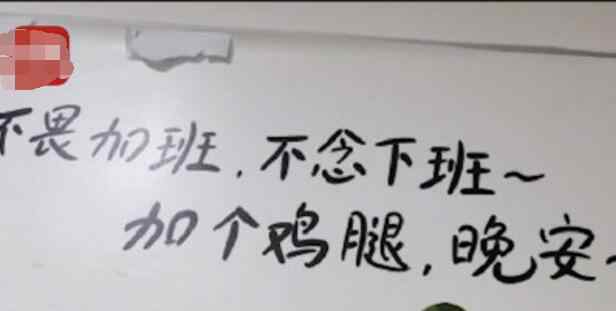 不畏加班,不念下班~
加个鸡腿,晚安